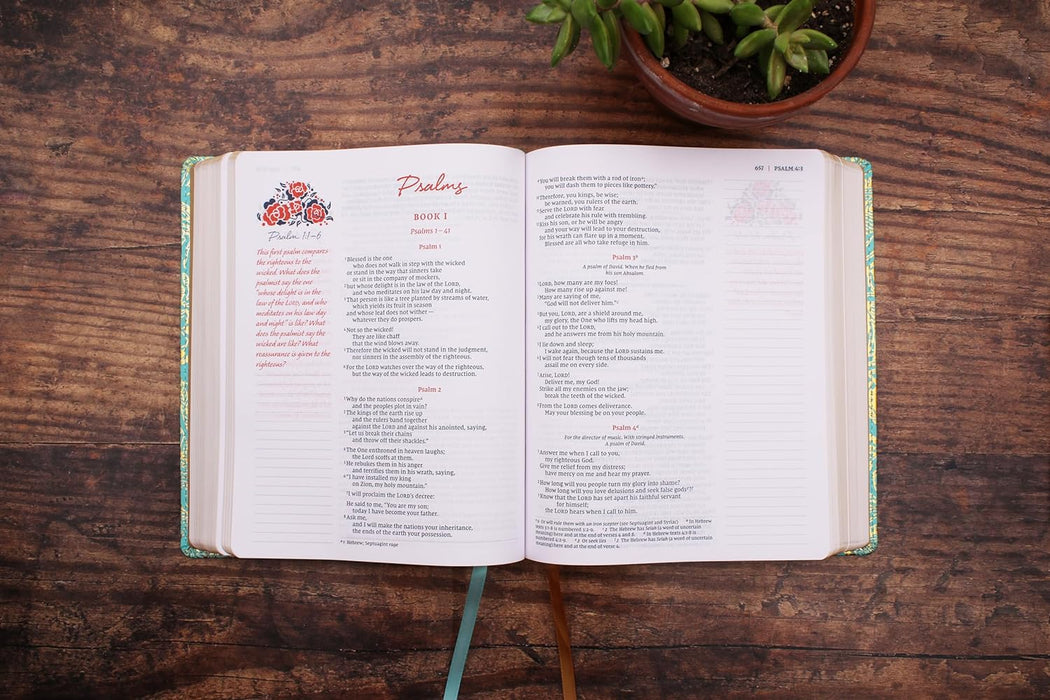 Psalm 1:1–6
This first psalm compares
the righteous to the
wicked. What does the
psalmist say the one
"whose delight is in the
law of the LORD, and who
meditates on his law day
and night" is like? What
does the psalmist say the
wicked are like? What
reassurance is given to the
righteous?
Psalms
BOOK I
Psalms 1–41
Psalm 1
1 Blessed is the one
who does not walk in step with the wicked
or stand in the way that sinners take
or sit in the company of mockers,
2 but whose delight is in the law of the LORD,
and who meditates on his law day and night.
3 That person is like a tree planted by streams of water,
which yields its fruit in season
and whose leaf does not wither—
whatever they do prospers.
4 Not so the wicked!
They are like chaff
that the wind blows away.
5 Therefore the wicked will not stand in the judgment,
nor sinners in the assembly of the righteous.
6 For the LORD watches over the way of the righteous,
but the way of the wicked leads to destruction.
Psalm 2
1 Why do the nations conspire a
and the peoples plot in vain?
2 The kings of the earth rise up
and the rulers band together
against the LORD and against his anointed, saying,
3 "Let us break their chains
and throw off their shackles."
4 The One enthroned in heaven laughs;
the Lord scoffs at them.
5 He rebukes them in his anger
and terrifies them in his wrath, saying,
6 "I have installed my king
on Zion, my holy mountain."
7 I will proclaim the LORD's decree:
He said to me, "You are my son;
today I have become your father.
8 Ask me,
and I will make the nations your inheritance,
the ends of the earth your possession.
a 1 Hebrew; Septuagint rage
657 | PSALM 4:3
9 You will break them with a rod of iron b;
you will dash them to pieces like pottery."
10 Therefore, you kings, be wise;
be warned, you rulers of the earth.
11 Serve the LORD with fear
and celebrate his rule with trembling.
12 Kiss his son, or he will be angry
and your way will lead to your destruction,
for his wrath can flare up in a moment.
Blessed are all who take refuge in him.
Psalm 3 c
A psalm of David. When he fled from
his son Absalom.
1 LORD, how many are my foes!
How many rise up against me!
2 Many are saying of me,
"God will not deliver him." d
3 But you, LORD, are a shield around me,
my glory, the One who lifts my head high.
4 I call out to the LORD,
and he answers me from his holy mountain.
5 I lie down and sleep;
I wake again, because the LORD sustains me.
6 I will not fear though tens of thousands
assail me on every side.
7 Arise, LORD!
Deliver me, my God!
Strike all my enemies on the jaw;
break the teeth of the wicked.
8 From the LORD comes deliverance.
May your blessing be on your people.
Psalm 4 e
For the director of music. With stringed instruments.
A psalm of David.
1 Answer me when I call to you,
my righteous God.
Give me relief from my distress;
have mercy on me and hear my prayer.
2 How long will you people turn my glory into shame?
How long will you love delusions and seek false gods?
3 Know that the LORD has set apart his faithful servant
for himself;
the LORD hears when I call to him.
9 Or will rule them with an iron scepter (see Septuagint and Syriac) In Hebrew
texts 3:1-8 is numbered 3:2-9. 2 The Hebrew has Selah (a word of uncertain
meaning) here and at the end of verses 4 and 8. In Hebrew texts 4:1-8 is
numbered 4:2-9. 2 Or seek lies 2 The Hebrew has Selah (a word of uncertain
meaning) here and at the end of verse 4.